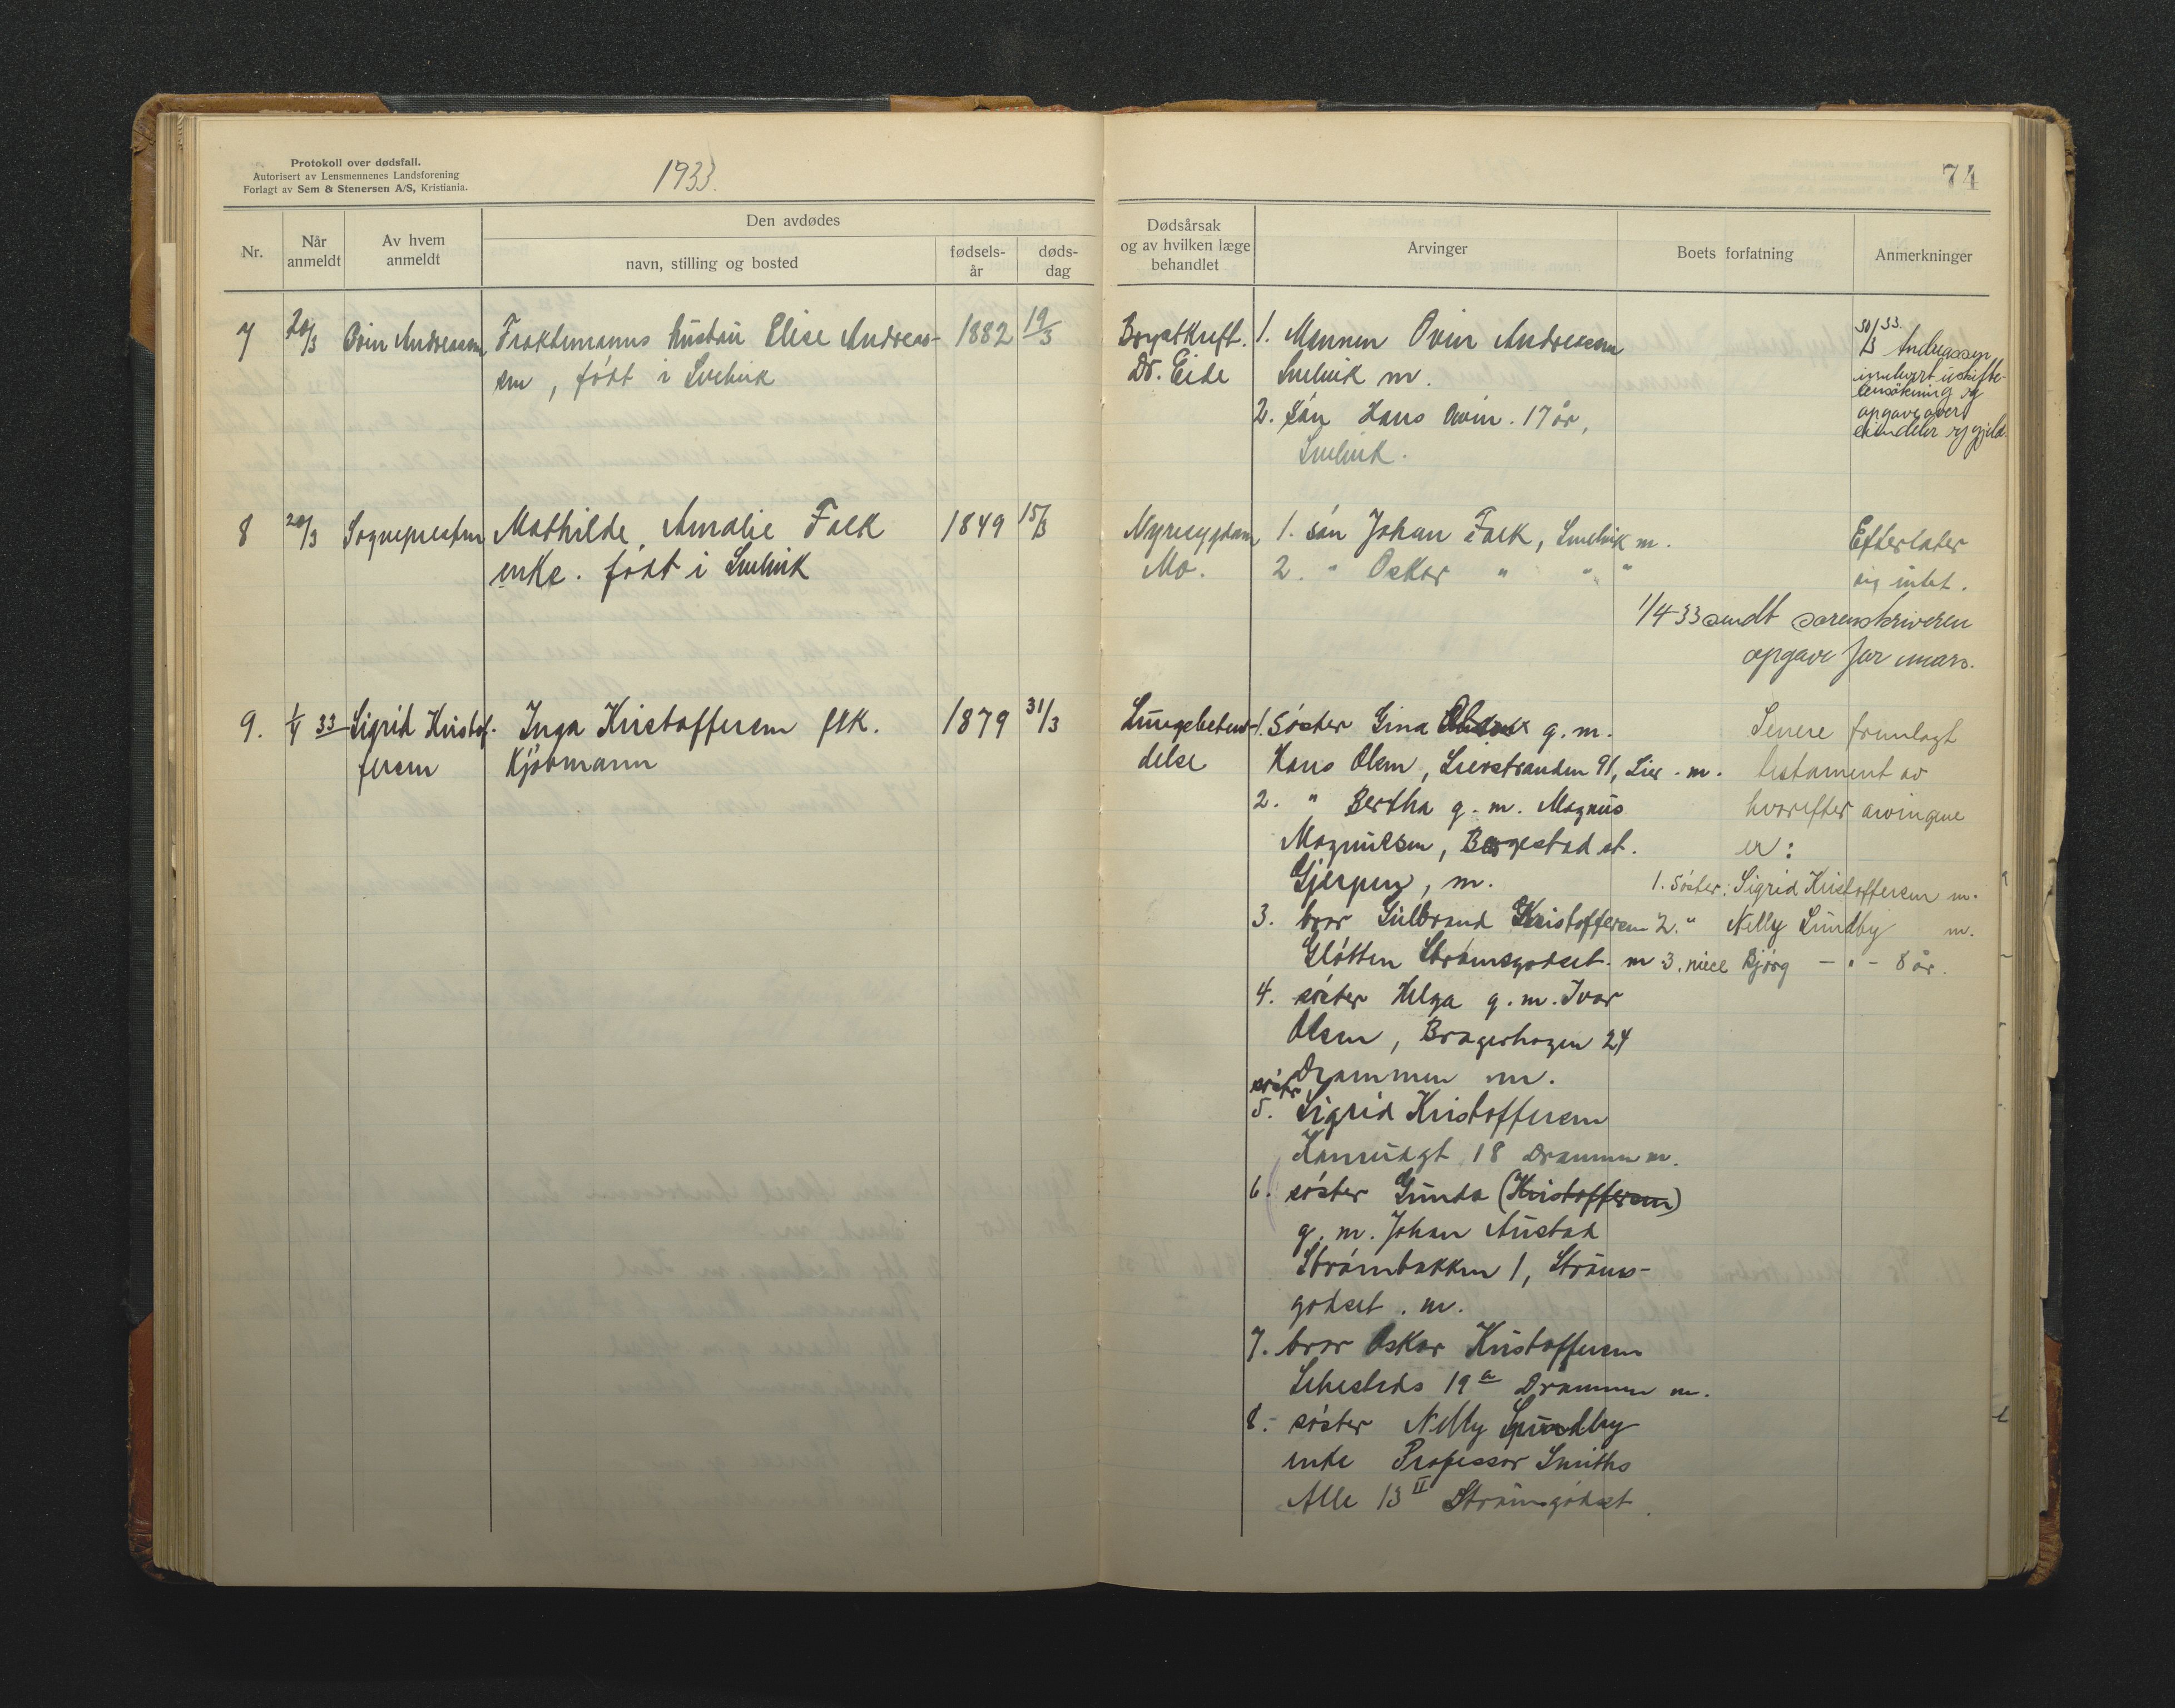 Protokoll over dødsfall.
Autorisert av Lensmennenes Landsforening
Forlagt av Sem & Stenersen A/S, Kristiania.
1933.
Nr.
Når anmeldt
Av hvem anmeldt
Den avdødes
navn, stilling og bosted
fødsels-år
døds-dag
7 20/3 Ovin Andreassen Fraktemanns hustru Elise Andreas- 1882 19/3
sen, født i Svelvik
8 20/3 Sognepresten Mathilde Amalie Falk 1849 15/3
enke. født i Svelvik
9. 1/4 33 Sigrid Kristof- Inga Kristoffersen frk. 1879 31/3
fersen Kjøbmann
74
Dødsårsak
og av hvilken læge
behandlet
Arvinger
Boets forfatning
Anmerkninger
Brystkreft. 1. Mannen Ovin Andreassen
Dr. Eide Svelvik m.
2. Søn Hans Ovin. 17 år,
Svelvik.
30/3 33.
Andreassen
innlevert uskifte-
ansøkning og
opgave over
eiendeler og gjeld.
Nyresygdom 1. søn Johan Falk, Svelvik m.
Mo. 2. " Oskar " " "
Efterlater
sig intet.
1/4 33 sendt sorenskriveren
opgave for mars.
Lungebeten- 1. Søster Gina g. m.
delse Hans Olsen, Lierstranden 91, Lier. m.
2. " Bertha g. m. Magnus
Magnussen, Borgestad st.
Gjerpen, m.
3. bror Gulbrand Kristoffersen
Gløtten Strømsgodset. m
4. søster Helga g. m. Ivar
Olsen, Bragerhagen 24
Drammen m.
søster
5. Sigrid Kristoffersen
18 Drammen m.
6. søster Gunda (Kristoffersen)
g. m. Johan Austad
Strømbakken 1, Strøms-
godset. m.
7. bror Oskar Kristoffersen
Sehesteds 19a Drammen m.
8. søster Nelly Lundby
enke Professor Smiths
Alle 13 II Strømsgodset.
Senere fremlagt
testament av
hvorefter arvingene
er:
1. Søster: Sigrid Kristoffersen m.
2. " Nelly Lundby m.
3. niece Bjørg - " - 8 år.